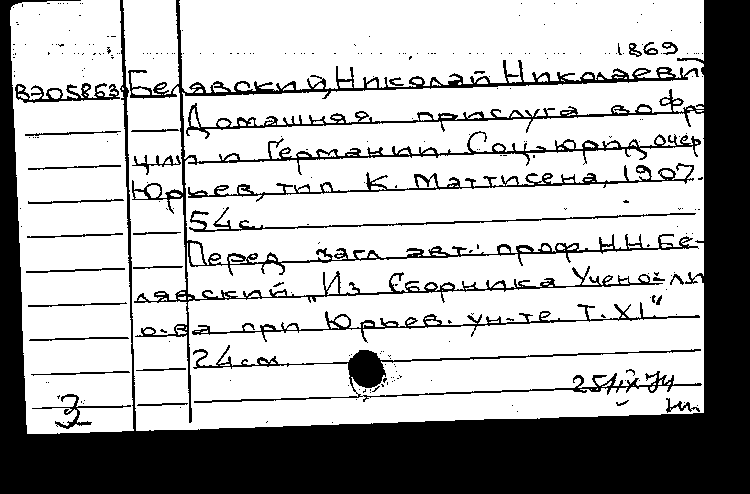 1869
В7058639 Белявский, Николай Николаевич
Домашняя прислуга во Фра
ции и Германии. Соц.-юрид. очер
Юрьев, тип. К. Маттисена, 1907.
54 с.
Перед загл. авт.: проф. Н.Н. Бе-
лявский. "Из Сборника Учено-ли
о-ва при Юрьев. ун-те. Т. XI"
24 см.
3